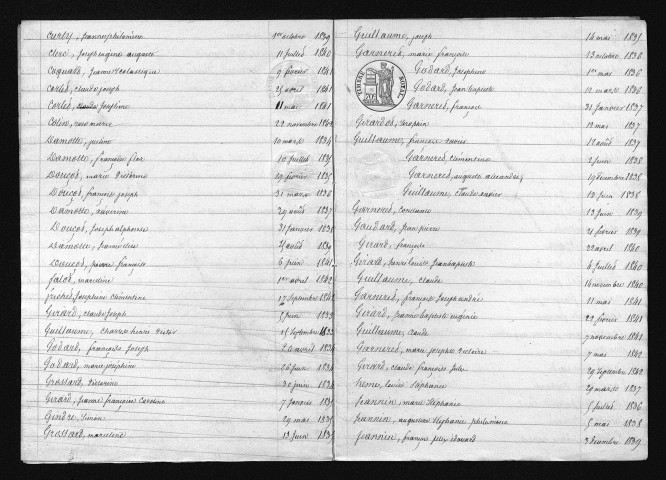 Curty, jeanne philomène 1er octobre 1839
Clerc, Joseph eugène auguste 11 juillet 1840
Coquard, jeanne scolastique 9 février 1841
Corlet, claude joseph 25 avril 1841
Corlet, claude joséphine 11 mars 1841
Colin, rose marie 22 novembre 1842
Damotte, justine 10 mars 1834
Damotte, françoise flor 10 juillet 1835
Douçot, marie victorine 19 février 1835
Douçot, françois joseph 31 mars 1836
Damotte, séverine 29 août 1837
Douçot, Joseph alphonse 31 janvier 1838
Damotte, 2 août 1839
Douçot, pierre françois 6 juin 1841
fatot, marceline 1er avril 1842
friches, Joséphine clémentine 17 septembre 1842
Girard, claude Joseph 2 juin 1833
Guillaume, charles henri victor 15 septembre 1833
Godard, françois Joseph 26 avril 1834
Godard, marie joséphine 26 juin 1834
Grossard, victorine 30 juin 1834
Girard, jeanne françoise Caroline 7 janvier 1835
Gindre, Simon 29 mai 1835
Grossard, marceline 13 juin 1835
Guillaume, joseph 16 mai 1835
Garneret, marie françoise 13 octobre 1836
Godard, Joséphine 1er mai 1836
Godard, jean baptiste 12 mars 1836
Garneret, françois 31 janvier 1837
TIMBRE ROYAL
Girardot, Séraphin 12 mai 1837
Guillaume, françois xavier 18 août 1837
Garneret, clémentine 2 juin 1838
Garneret, auguste alexandre 19 décembre 1838
Guillaume, claude xavier 12 juin 1838
Garneret, constance 13 juin 1839
Gaudard, jean pierre 21 février 1839
Girard, françoise 22 avril 1840
Girard, henri louis jean baptiste 6 juillet 1840
Guillaume, claude 16 novembre 1840
Garneret, françois Joseph andré 11 mai 1841
Girard, jeanne baptiste eugénie 22 février 1841
Guillaume, claude 7 novembre 1841
Garneret, marie josephe victoire 7 mai 1842
Girard, claude françois félix 29 septembre 1842
henne, louise Stéphanie 29 mars 1837
jeannin, marie Stéphanie 5 juillet 1836
jeannin, augustine Stéphanie philomène 5 mai 1838
jeannin, françois félix édouard 3 décembre 1839